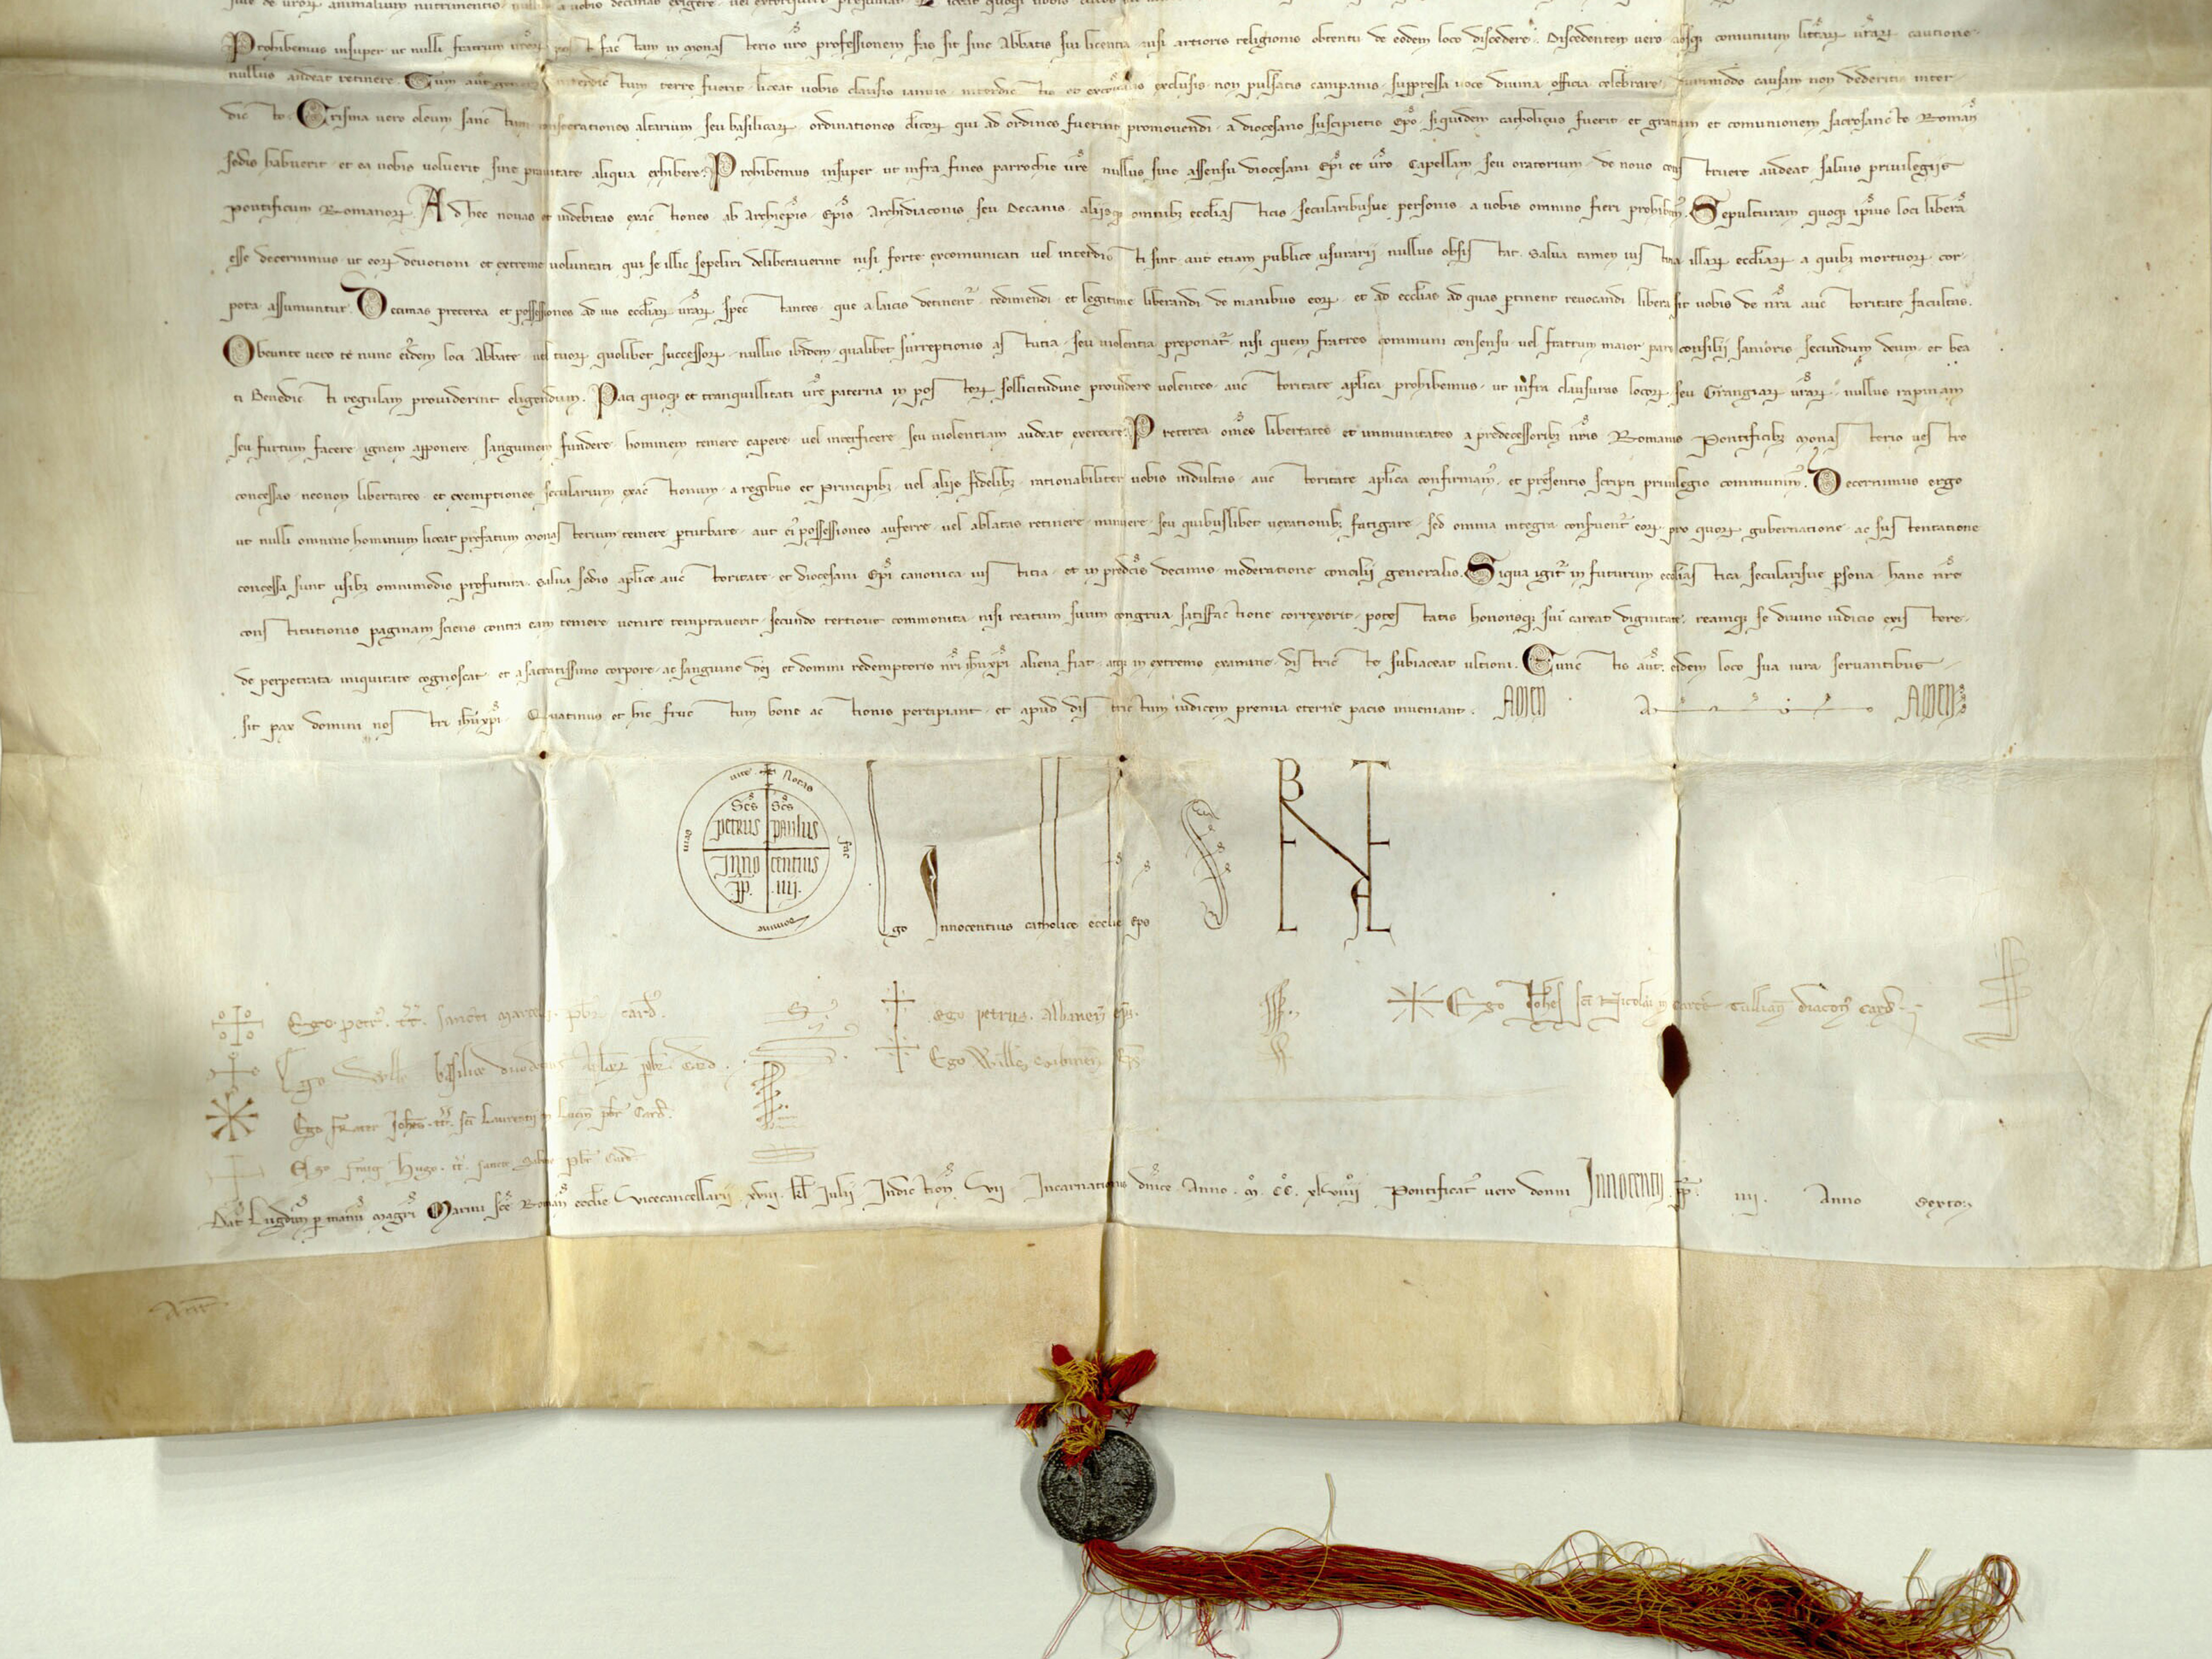 siue de uror animalium nutrimentis a uobis decimas exigere uel extorquere presumat
Prohibemus insuper ut nulli fratrum uror post factam in monasterio uro professionem fas sit sine Abbatis sui licentia nisi artioris religionis obtentu de eodem loco discedere. Discedentem uero absq; comunium littar urar cautione
nullus audeat retinere. Cum aut interdictum terre fuerit liceat uobis clausis ianuis interdictis et excoicatis exclusis non pulsatis campanis suppressa uoce diuina officia celebrare dummodo causam non dederitis inter-
dicto. Crisma uero oleum sanctum consecrationes altarium seu basilicar ordinationes clicor qui ad ordines fuerint promouendi a diocesano suscipietis epo siquidem catholicus fuerit et gratiam et comunionem sacrosancte Roman
sedis habuerit et ea uobis uoluerit sine prauitate aliqua exhibere. Prohibemus insuper ut infra fines parrochie ure nullus sine assensu diocesani epi et uro Capellam seu oratorium de nouo construere audeat saluis priuilegiis
pontificum Romanor. Ad hec nouas et indebitas exactiones ab Archiepis Epis Archidiaconis seu Decanis aliisq; omnibz ecclasticis secularibusue personis a uobis omnino fieri prohibem. Sepulturam quoq; ipius loci libera
esse decernimus ut eor deuotioni et extreme uoluntati qui se illic sepeliri deliberauerint nisi forte excomunicati uel interdicti sint aut etiam publice usurarii nullus obsistat. Salua tamen iustitia illar ecclar a quibz mortuor cor-
pora assumuntur. Decimas preterea et possessiones ad ius ecclar urar spectantes que a laicis detinent redimendi et legitime liberandi de manibus eor et ad ecclas ad quas ptinent reuocandi libera sit uobis de nra auctoritate facultas.
Obeunte uero te nunc eidem loci Abbate uel tuor quolibet successor nullus ibidem qualibet surreptionis astutia seu uiolentia preponat nisi quem fratres communi consensu uel fratrum maior pars consilii sanioris secundum deum et bea
ti Benedicti regulam prouiderint eligendum. Paci quoq; et tranquillitati ure paterna in poster sollicitudine prouidere uolentes auctoritate aplica prohibemus ut infra clausuras locor seu Grangiar urar nullus rapinam
seu furtum facere ignem apponere sanguinem fundere hominem temere capere uel interficere seu uiolentiam audeat exercere. Preterea omes libertates et immunitates a predecessoribz nris Romanis Pontificibz monasterio uestro
concessas necnon libertates et exemptiones secularium exactionum a regibus et Principibz uel aliis fidelibz rationabiliter uobis indultas auctoritate aplica confirmam et presentis scripti priuilegio communim. Decernimus ergo
ut nulli omnino hominum liceat prefatum monasterium temere pturbare aut ei possessiones auferre uel ablatas retinere minuere seu quibuslibet uexationibz fatigare sed omnia integra conseruent eor pro quor gubernatione ac sustentatione
concessa sunt usibz omnimodis profutura. Salua sedis aplice auctoritate et diocesani Epi canonica iustitia et in predcis decimis moderatione concilii generalis. Siqua igit in futurum ecclastica secularisue psona hanc nre
constitutionis paginam sciens contra eam temere uenire temptauerit secundo tertioue commonita nisi reatum suum congrua satisfactione correxerit potestatis honorisq; sui careat dignitate reamq; se diuino iudicio existere
de perpetrata iniquitate cognoscat et a sacratissimo corpore ac sanguine dei et domini redemptoris nri ihu xpi aliena fiat atq; in extremo examine districte subiaceat ultioni. Cunctis aut eidem loco sua iura seruantibus
sit pax domini nostri ihu xpi. Quatinus et hic fructum bone actionis percipiant et apud districtum iudicem premia eterne pacis inueniant. AMEN A AMEN
Notas fac Domine uias uite
Scs Petrus Scs Paulus
Innocentius
PP. IIII.
Ego Innocentius catholice ecclie eps
Ego petr tt sancti marcelli pbr card.
Ego petrus Albanen eps.
Ego Johes sci Nicolai in carcere Tullian diacon Card
Ego Wills basilice duodecim pbr Card
Ego Wills Sabinen Eps
Ego frater Johes tt sci Laurentii in Lucin pbr Card.
Ego frater Hugo tt sancte Sabine pbr Card
Dat Lugdun p manu magri Marini sce Roman ecclie Vicecancellarii xviii kl Iulii Indiction VII Incarnationis dnice Anno M CC xlviiii Pontificat uero donni Innocentii PP. IIII. Anno Sexto